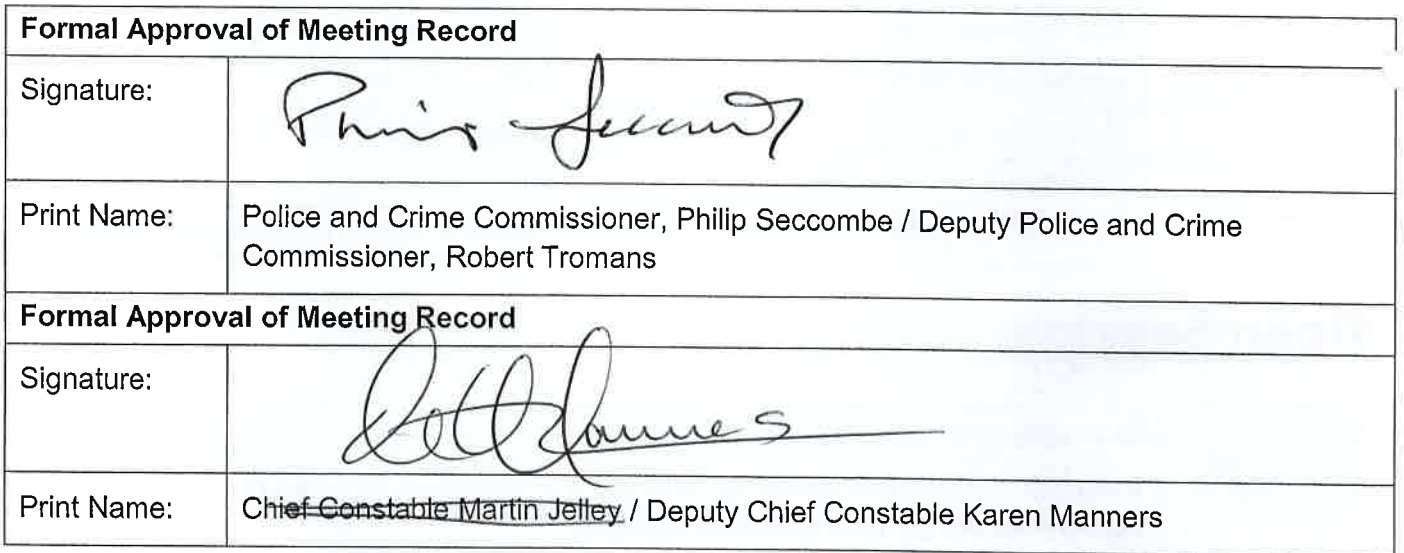 Formal Approval of Meeting Record
Signature:
Philip Seccombe
Print Name:
Police and Crime Commissioner, Philip Seccombe / Deputy Police and Crime
Commissioner, Robert Tromans
Formal Approval of Meeting Record
Signature:
Manners
Print Name:
Chief Constable Martin Jelley / Deputy Chief Constable Karen Manners